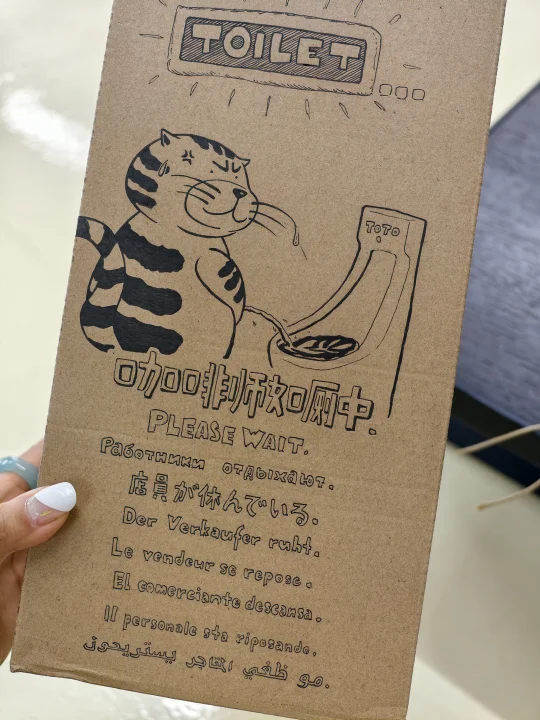 TOILET
TOTO
咖啡师如厕中.
PLEASE WAIT.
Работники отдыхают.
店員が休んでいる.
Der Verkaufer ruht.
Le vendeur se repose.
El comerciante descansa.
Il personale sta riposando.
مو ظفي المتاجر يستريحون.